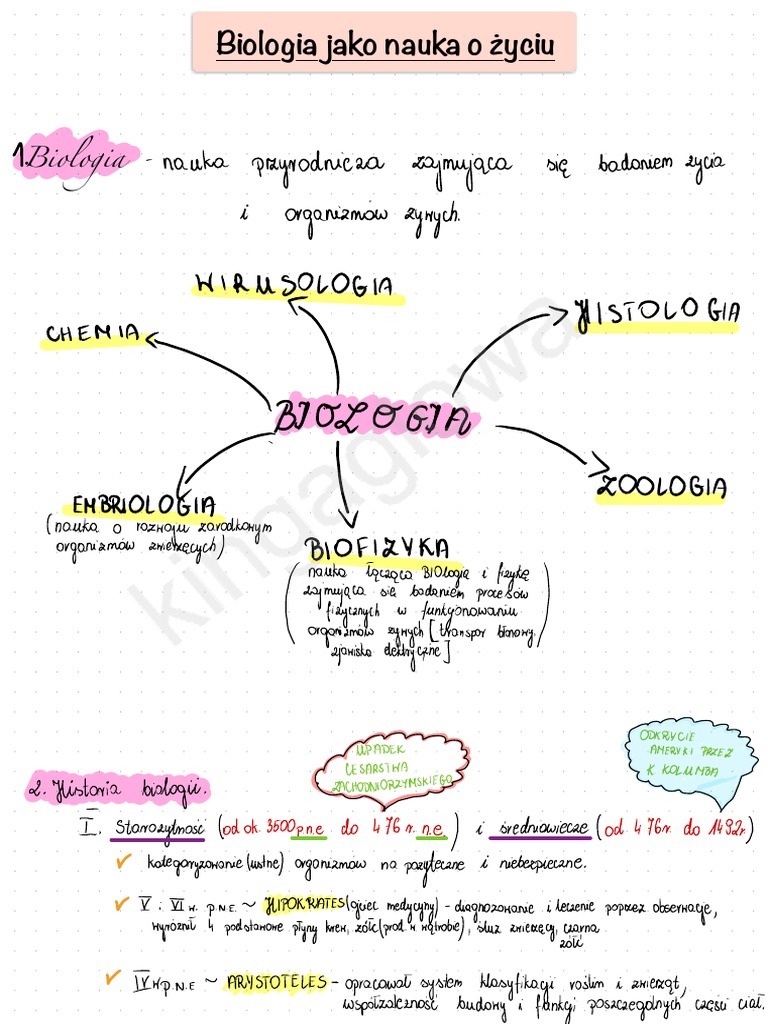 Biologia jako nauka o życiu
1. Biologia - nauka przyrodnicza zajmująca się badaniem życia
i organizmów żywych.
WIRUSOLOGIA
HISTOLOGIA
CHEMIA
BIOLOGIA
ZOOLOGIA
EMBRIOLOGIA
(nauka o rozwoju zarodkowym
organizmów zwierzęcych)
BIOFIZYKA
(nauka łącząca BIOlogię i fizykę
zajmująca się badaniem procesów
fizycznych w funkcjonowaniu
organizmów żywych [transpor błonowy,
zjawiska elektryczne])
kingaglowa
UPADEK
CESARSTWA
ZACHODNIORZYMSKIEGO
ODKRYCIE
AMERYKI PRZEZ
K KOLUMBA
2. Historia biologii.
I. Starożytność (od ok. 3500 p.n.e do 476 r. n.e.) i średniowiecze (od. 476r. do 1492r.)
✓ kategoryzowanie (ustne) organizmów na pożyteczne i niebezpieczne.
✓ V i VI w. p.n.e. ~ HIPOKRATES (ojciec medycyny) - diagnozowanie i leczenie poprzez obserwacje,
wyróżnił 4 podstawowe płyny krew, żółć (prod. w wątrobie), śluz zwierzęcy, czarna
żółć
✓ IV w p.n.e ~ ARYSTOTELES - opracował system klasyfikacji roślin i zwierząt,
współzależność budowy i funkcji poszczególnych części ciał.